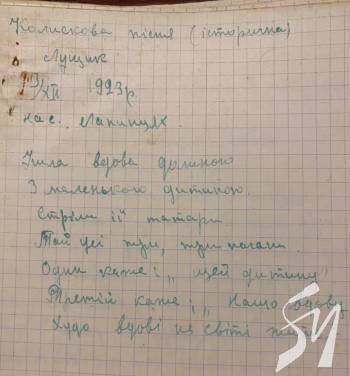 Колискова пісня (історична)
Лущик
13/XII 1923 р.
на с. Лапинцях.
Ішла вдова долиною
З маленькою дитиною.
Стріли її татари
Тай усі три, три погани.
Один каже: „цей дитину"
Третій каже: „Нащо вдову
Худо вдові на світі жити
SM